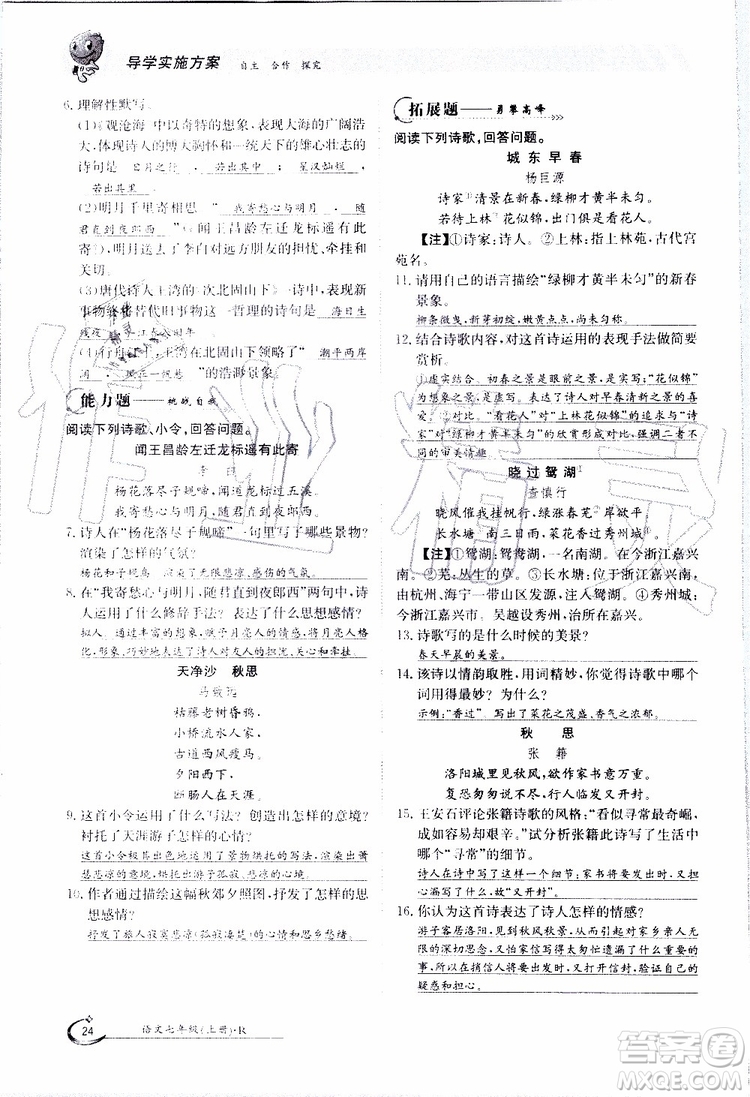 导学实施方案 自主 合作 探究
6. 理解性默写。
(1)《观沧海》中以奇特的想象,展示大海的广阔浩
大,体现诗人博大胸怀和统一天下的雄心壮志的
诗句是“日月之行,若出其中;星汉灿烂,
若出其里”
(2)明月千里寄相思“我寄愁心与明月,随
君直到夜郎西”(《闻王昌龄左迁龙标遥有此
寄》),明月送去了李白对远方朋友的担忧、牵挂和
关切。
(3)唐代诗人王湾的《次北固山下》诗中表现新
事物终将替代旧事物这一哲理的诗句是“海日生
残夜,江春入旧年”
(4)行舟江中,王湾在北固山下领略了“潮平两岸
阔,风正一帆悬”的浩渺景象。
能力题——挑战自我
阅读下列诗歌、小令,回答问题。
闻王昌龄左迁龙标遥有此寄
李白
杨花落尽子规啼,闻道龙标过五溪。
我寄愁心与明月,随君直到夜郎西。
7. 诗人在“杨花落尽子规啼”一句里写了哪些景物?
渲染了怎样的气氛?
杨花和子规。渲染了凄凉、感伤的气氛。
8. 在“我寄愁心与明月,随君直到夜郎西”两句中,诗
人运用了什么修辞手法?表达了什么思想感情?
拟人。通过丰富的想象,赋予月亮以情感,将月亮人格
化,形象、巧妙地表达了对友人的关心和牵挂。
天净沙 秋思
马致远
枯藤老树昏鸦,
小桥流水人家,
古道西风瘦马。
夕阳西下,
断肠人在天涯。
9. 这首小令运用了什么写法?创造出怎样的意境?
衬托了天涯游子怎样的心情?
这首小令极其出色地运用了景物烘托的写法,渲染出萧
瑟悲凉的意境,烘托出天涯游子孤寂、悲凉的心境。
10. 作者通过描绘这幅秋郊夕照图,抒发了怎样的思
想感情?
抒发了旅人寂寞悲凉(孤寂凄楚)的心情和思乡愁绪。
拓展题——勇攀高峰
阅读下列诗歌,回答问题。
城东早春
杨巨源
诗家①清景在新春,绿柳才黄半未匀。
若待上林②花似锦,出门俱是看花人。
【注】①诗家:诗人。②上林:指上林苑,古代宫
苑名。
11. 请用自己的语言描绘“绿柳才黄半未匀”的新春
景象。
柳条微曳,新芽初绽,嫩黄点点,尚未匀称。
12. 结合诗歌内容,对这首诗运用的表现手法做简要
赏析。
①虚实结合。初春之景是眼前之景,为实写;“花似锦”
之景是想象,是虚写。表达了诗人对早春清新之景的喜
爱。②对比。“看花人”对“上林花似锦”的追求与“诗
家”对“绿柳才黄半未匀”的欣赏形成对比,强调二者不同
的审美情趣。
晓过鸳湖①
查慎行
晓风催我挂帆行,绿涨春芜②岸欲平。
长水塘③南三日雨,菜花香过秀州城④。
【注】①鸳湖:鸳鸯湖,一名南湖。在今浙江嘉兴
市南。②芜:丛生的草。③长水塘:在嘉兴城南,
由杭州、海宁一带山区发源,注入鸳湖。④秀州城:
今浙江嘉兴市。吴越设秀州,治所在嘉兴。
13. 诗歌写的是什么时候的美景?
春天早晨的美景。
14. 该诗以情韵取胜,用词精妙,你觉得诗歌中哪个
词用得最妙?为什么?
示例:“香过”。写出了菜花之茂盛、香气之浓郁。
秋思
张籍
洛阳城里见秋风,欲作家书意万重。
复恐匆匆说不尽,行人临发又开封。
15. 王安石评论张籍诗歌的风格:“看似寻常最奇崛,
成如容易却艰辛。”试分析张籍此诗写了生活中
哪个“寻常”的细节。
诗人在书信即将发出时,怕遗漏了什么,又将信打开,担
心漏写了什么的细节。
16. 你认为这首诗表达了诗人怎样的感情?
游子客居洛阳,见到秋风秋景,从而引起对家乡亲人无
限的思念和关心,又怕家信写得太匆忙遗漏了应该说
的内容,所以在捎信人将要出发时,又打开信封,验证自己的
疑惑和担心。
24 语文七年级(上册)·R
作业精灵
作业精灵
答案圈
MXQE.COM